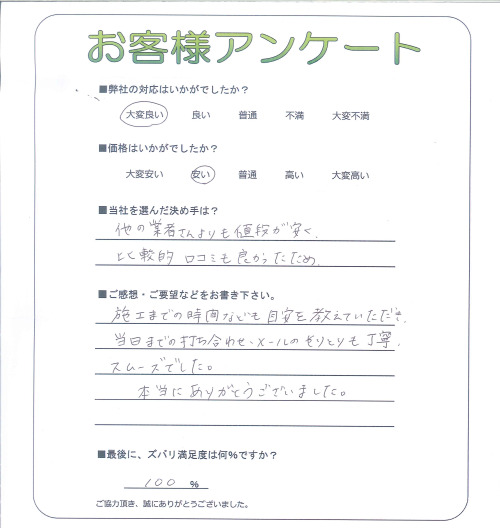 お客様アンケート
■弊社の対応はいかがでしたか?
大変良い 良い 普通 不満 大変不満
■価格はいかがでしたか?
大変安い 安い 普通 高い 大変高い
■当社を選んだ決め手は?
他の業者さんよりも値段が安く、
比較的 口コミも良かったため。
■ご感想・ご要望などをお書き下さい。
施工までの時間なども目安を教えていただき、
当日までの打ち合わせ、メールのやりとりも丁寧、
スムーズでした。
本当にありがとうございました。
■最後に、ズバリ満足度は何%ですか?
100 %
ご協力頂き、誠にありがとうございました。